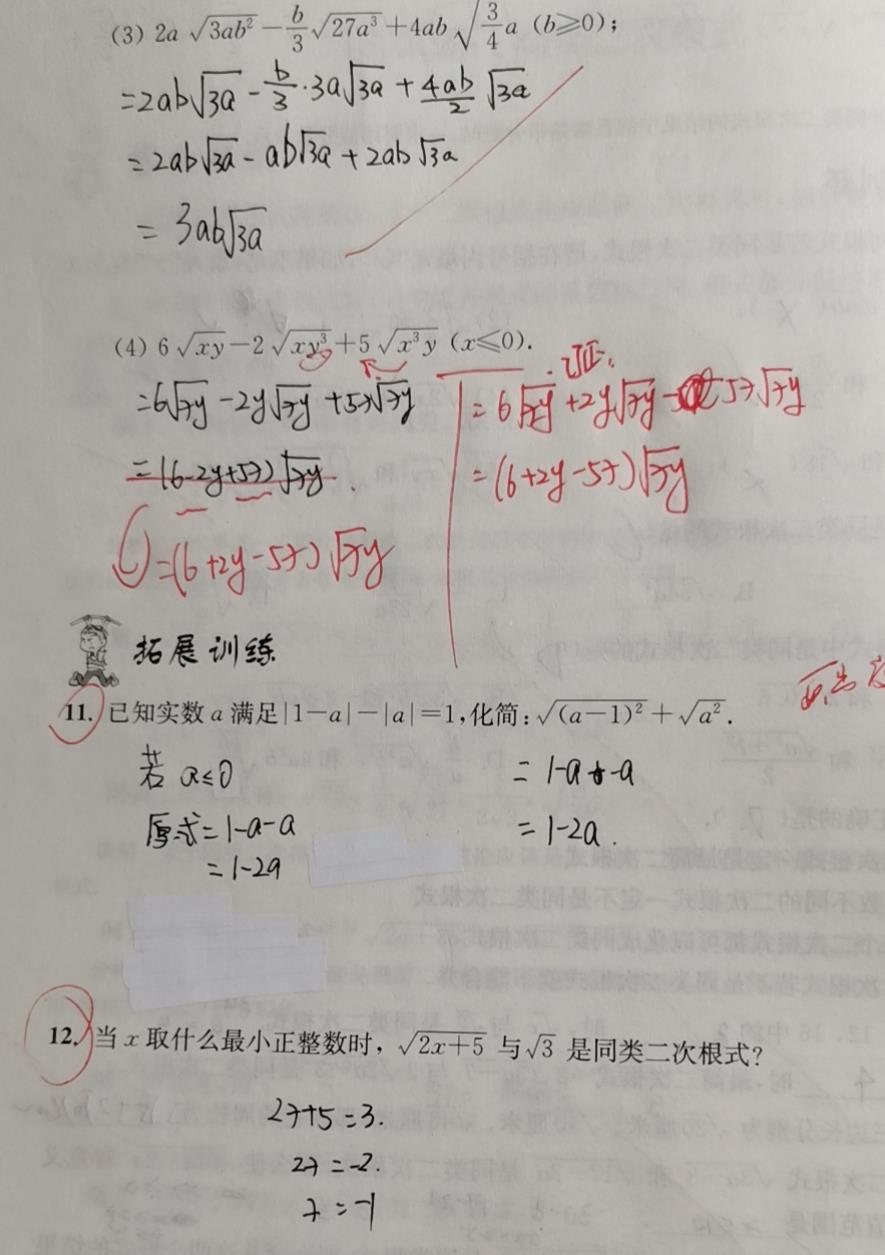 (3) 2a√(3ab²) − b/3 √(27a³) + 4ab√(3/4 a) (b⩾0);
=2ab√3a − b/3·3a√3a + 4ab/2 √3a
=2ab√3a − ab√3a + 2ab√3a
= 3ab√3a
(4) 6√(xy) − 2√(xy³) + 5√(x³y) (x⩽0).
=6√xy − 2y√xy + 5x√xy
=(6-2y+5x)√xy.
=(6+2y-5x)√xy
证:
=6√xy+2y√xy-5x√xy
=(6+2y-5x)√xy
拓展训练
11. 已知实数 a 满足|1−a|−|a|=1,化简:√(a−1)²+√a².
若 a≤0
原式=1-a-a
=1-2a
= 1-a+-a
= 1-2a.
12. 当 x 取什么最小正整数时, √(2x+5) 与√3 是同类二次根式?
2x+5=3.
2x=-2.
x=-1